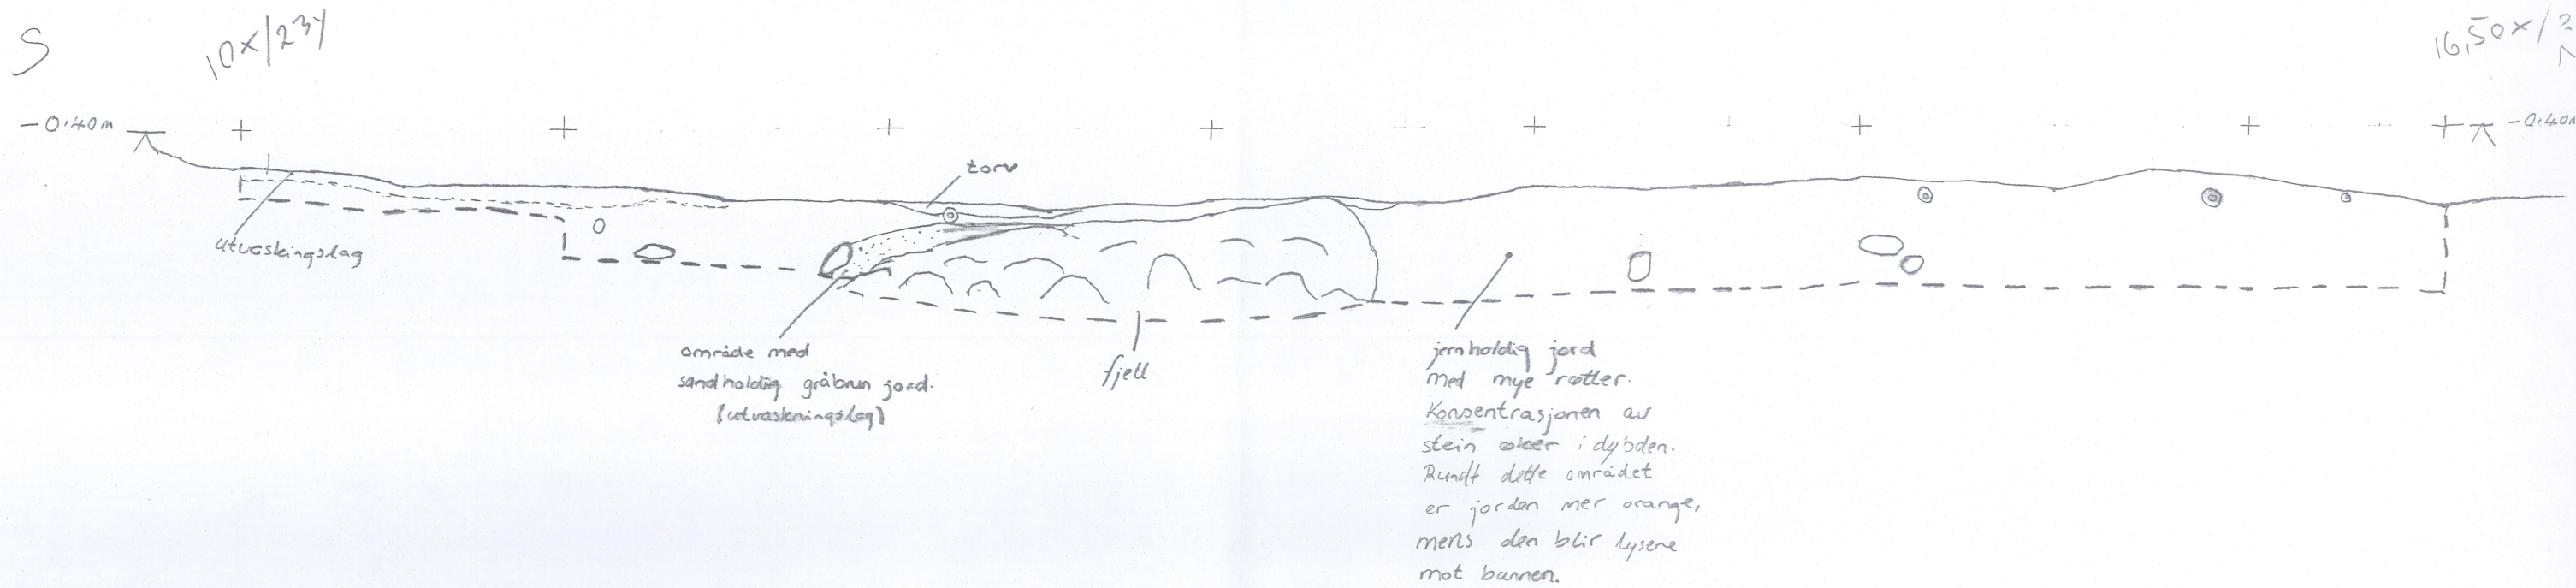 S
10x/23y
16,50x/2
N
-0.40m
-0.40m
torv
utvaskingslag
område med
sandholdig gråbrun jord.
(utvaskningslag)
fjell
jernholdig jord
med mye røtter.
Konsentrasjonen av
stein øker i dybden.
Rundt dette området
er jorden mer orange,
mens den blir lysere
mot bunnen.